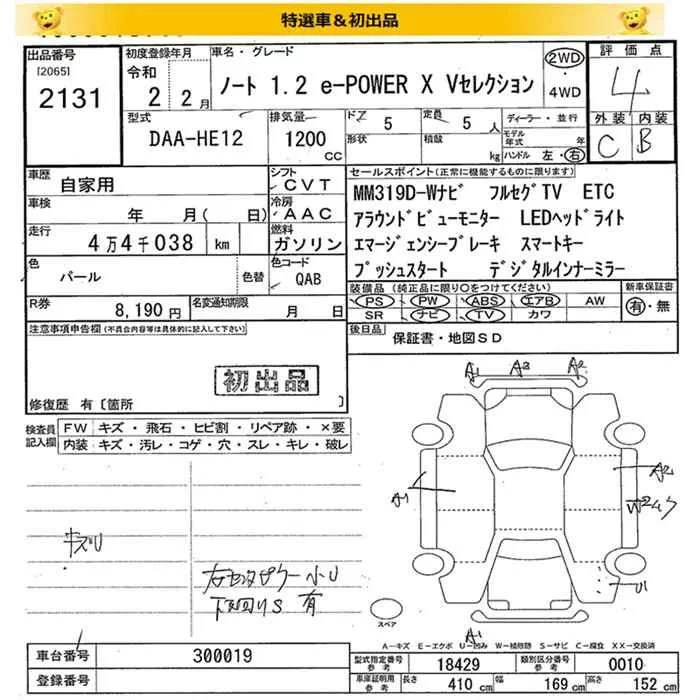 特選車＆初出品
出品番号
[2065]
2131
初度登録年月
令和
2 2月
車名・グレード
ノート 1.2 e-POWER X Vセレクション
2WD
・
4WD
評価点
4
外装 内装
C B
型式
DAA-HE12
排気量
1200
CC
ドア 5
形状
定員 5 人
積載 kg
ディーラー・並行
モデル年式 年
ハンドル 左・右
車歴
自家用
シフト
CVT
車検
年 月( 日)
冷房
AAC
走行
4万4千038 km
燃料
ガソリン
色
パール
色替
色コード
QAB
R券
8,190円
名変通知期限
月 日
セールスポイント(正常に機能するものに限ります)
MM319D-Wナビ フルセグTV ETC
アラウンドビューモニター LEDヘッドライト
エマージェンシーブレーキ スマートキー
プッシュスタート デジタルインナーミラー
装備品 (純正品に限り○をつけてください)
PS PW ABS エアB AW
SR ナビ TV カワ
新車保証書
有・無
後日品
保証書・地図SD
注意事項申告欄 (不具合内容等は具体的に記入して下さい)
初出品
修復歴 有〔箇所 〕
検査員記入欄
FW キズ・飛石・ヒビ割・リペア跡・×要
内装 キズ・汚レ・コゲ・穴・スレ・キレ・破レ
キズU
下回りS 有
A1 A3 A2
A1
A2
W2
U1
A1
スペア
A−キズ E−エクボ U−凹み W−補修跡 S−サビ C−腐食 XX−交換済
車台番号
300019
登録番号
型式指定番号参考
18429
類別区分番号参考
0010
車庫証明用参考
長さ 410 cm 幅 169 cm 高さ 152 cm